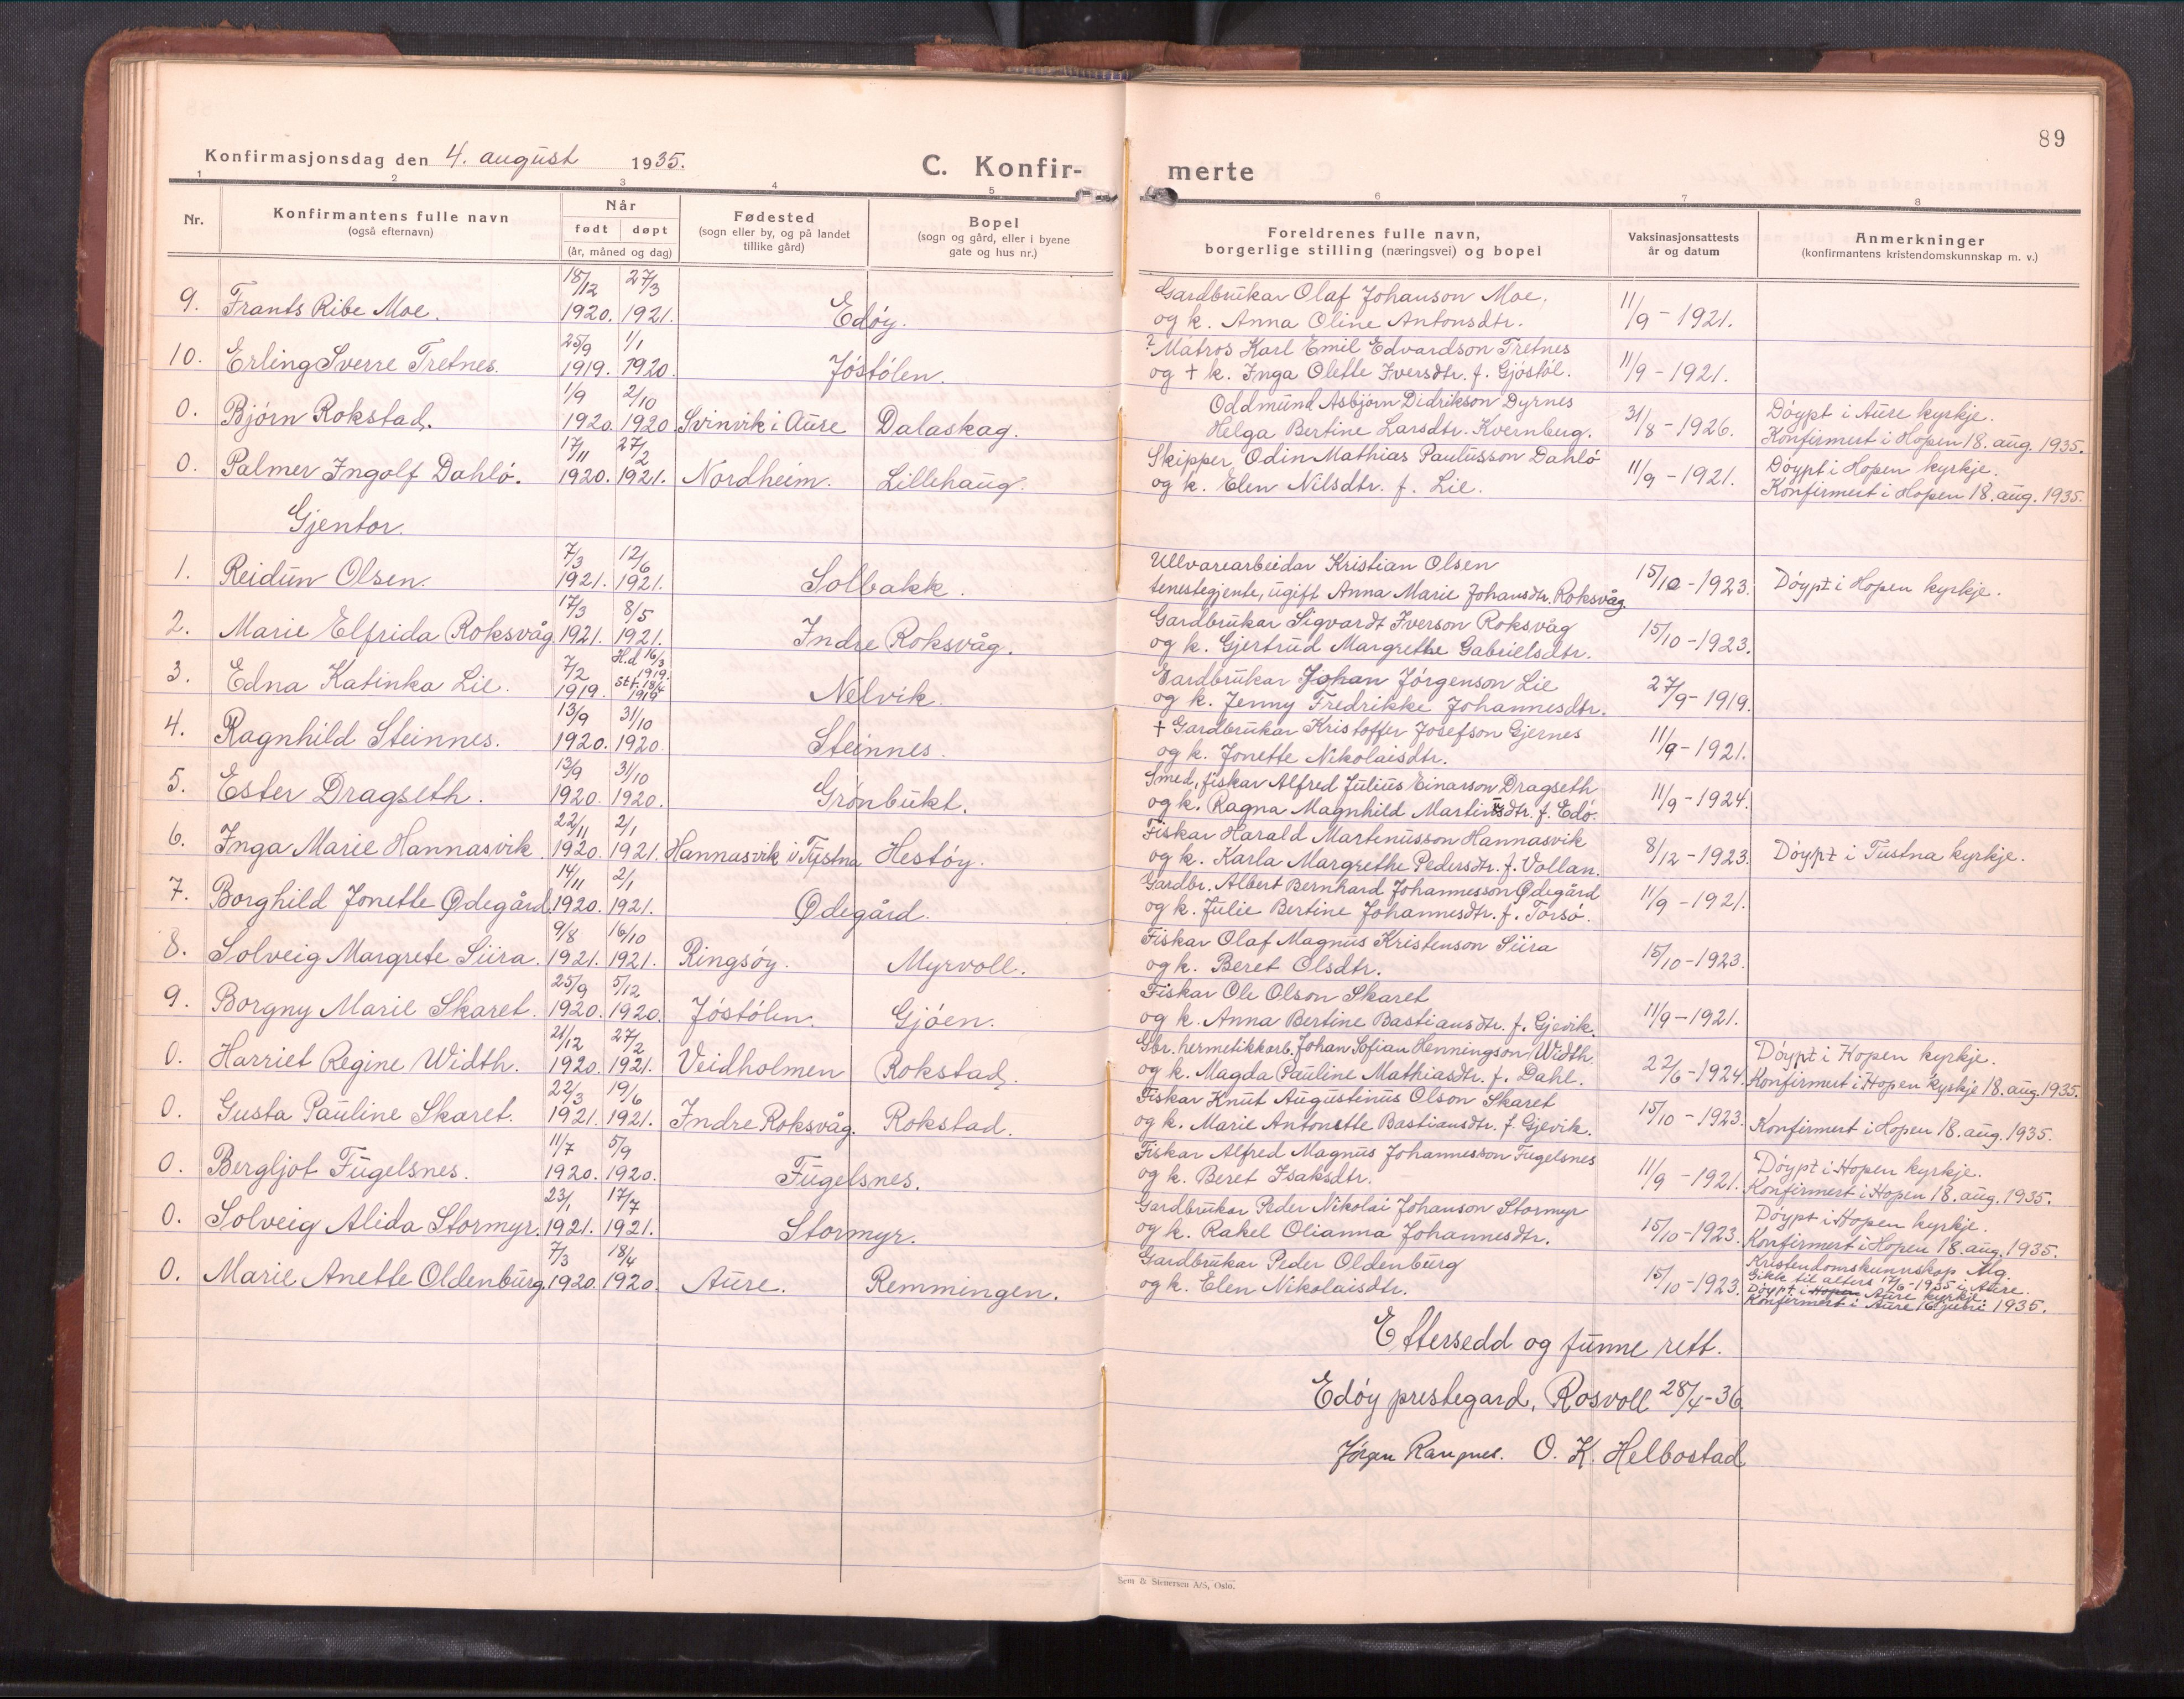 89
Konfirmasjonsdag den 4. august 1935.
C. Konfir-
merte
1 2 3 4 5 6 7 8
Nr. Konfirmantens fulle navn (også efternavn) Når født døpt (år, måned og dag) Fødested (sogn eller by, og på landet tillike gård) Bopel (sogn og gård, eller i byene gate og hus nr.) Foreldrenes fulle navn, borgerlige stilling (næringsvei) og bopel Vaksinasjonsattests år og datum Anmerkninger (konfirmantens kristendomskunnskap m. v.)
9. Frants Ribe Moe. 18/12 1920. 27/3 1921. Edöy. Gardbrukar Olaf Johanson Moe, og k. Anna Oline Antonsdtr. 11/9 - 1921.
10. Erling Sverre Tretnes. 25/9 1919. 1/1 1920. Jóstólen. ? Matros Karl Emil Edvardson Tretnes og + k. Inga Olette Iversdtr. f. Gjóstól. 11/9 - 1921.
0. Bjørn Rokstad. 1/9 1920. 2/10 1920 Svinvik i Aure Dalaskag. Oddmund Asbjørn Didrikson Dyrnes Helga Bertine Larsdtr. Kvernberg. 31/8 - 1926. Dóypt i Aure kyrkje. Konfirmert i Hopen 18. aug. 1935.
0. Palmer Ingolf Dahló. 17/11 1920. 27/2 1921. Nordheim. Lillehaug. Skipper Odin Mathias Paulusson Dahló og k. Elen Nilsdtr. f. Lie. 11/9 - 1921. Dóypt i Hopen kyrkje. Konfirmert i Hopen 18. aug. 1935.
Gjentor.
1. Reidun Olsen. 7/3 1921. 12/6 1921. Solbakk. Ullvarearbeidar Kristian Olsen tenestegjente, ugift Anna Marie Johansdtr. Roksvåg. 15/10 - 1923. Dóypt i Hopen kyrkje.
2. Marie Elfrida Roksvåg 17/3 1921. 8/5 1921. Indre Roksvåg. Gardbrukar Sigvardt Iverson Roksvåg og k. Gjertrud Margrethe Gabrielsdtr. 15/10 - 1923.
3. Edna Katinka Lie. 7/2 1919. H.d 16/3 1919. St.f. 18/4 1919 Nelvik. Gardbrukar Johan Jórgenson Lie og k. Jenny Fredrikke Johannesdtr. 27/9 - 1919.
4. Ragnhild Steinnes. 13/9 1920. 31/10 1920. Steinnes. + Gardbrukar Kristoffer Josefson Gjernes og k. Jonette Nikolaisdtr. 11/9 - 1921.
5. Ester Dragseth. 13/9 1920. 31/10 1920. Grónbukt. Smed, fiskar Alfred Julius Einarson Dragseth og k. Ragna Magnhild Martinsdtr. f. Edó. 11/9 - 1924.
6. Inga Marie Hannasvik. 22/11 1920. 2/1 1921. Hannasvik i Tustna Hestóy. Fiskar Harald Martinusson Hannasvik og k. Karla Margrethe Pedersdtr. f. Vollan. 8/12 - 1923. Dóypt i Tustna kyrkje.
7. Borghild Jonette Ødegård. 14/11 1920. 2/1 1921. Ødegård. Gardbr. Albert Bernhard Johannesson Ødegård og k. Julie Bertine Johannesdtr. f. Torsó. 11/9 - 1921.
8. Solveig Margrete Siira. 9/8 1921. 16/10 1921. Ringsóy. Myrvoll. Fiskar Olaf Magnus Kristenson Siira og k. Beret Olsdtr. 15/10 - 1923.
9. Borgny Marie Skaret. 25/9 1920. 5/12 1920. Jóstólen. Gjóen. Fiskar Ole Olson Skaret og k. Anna Bertine Bastiansdtr. f. Gjevik. 11/9 - 1921.
0. Harriet Regine Width. 21/12 1920. 27/2 1921. Veidholmen Rokstad. Gbr. hermetikkarb. Johan Sofian Henningson Width. og k. Magda Pauline Mathiasdtr. f. Dahl. 22/6 - 1924. Dóypt i Hopen kyrkje. Konfirmert i Hopen kyrkje 18. aug. 1935.
0. Gusta Pauline Skaret. 22/3 1921. 19/6 1921. Indre Roksvåg. Rokstad. Fiskar Knut Augustinus Olson Skaret og k. Marie Antonette Bastiansdtr. f. Gjevik. 15/10 - 1923. Konfirmert i Hopen 18. aug. 1935.
0. Bergljot Fugelsnes. 11/7 1920. 5/9 1920. Fugelsnes. Fiskar Alfred Magnus Johannesson Fugelsnes og k. Beret Isaksdtr. 11/9 - 1921. Dóypt i Hopen kyrkje. Konfirmert i Hopen 18. aug. 1935.
0. Solveig Alida Stormyr. 23/1 1921. 17/7 1921. Stormyr. Gardbrukar Peder Nikolai Johanson Stormyr og k. Rakel Olianna Johannesdtr. 15/10 - 1923. Dóypt i Hopen kyrkje. Konfirmert i Hopen 18. aug. 1935.
0. Marie Anette Oldenburg. 7/3 1920. 18/4 1920. Aure. Remmingen. Gardbrukar Peder Oldenburg og k. Elen Nikolaisdtr. 15/10 - 1923. Kristendomskunnskap Mg. Gikk til alters 17/6 - 1935 i Aure. Dóypt i Hopen Aure kyrkje. Konfirmert i Aure 16 juni 1935.
Ettersedd og funne rett.
Edóy prestegard, Rosvoll 28/4 - 36
Jórgen O. K. Helbostad
Sem & Stenersen A/S, Oslo.